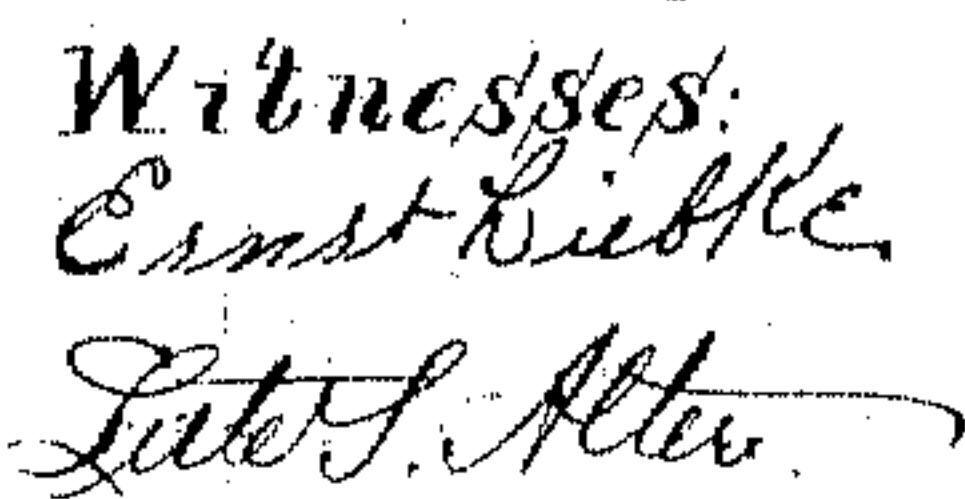 Witnesses:
Ernst Liebke
Lute S. Alter.